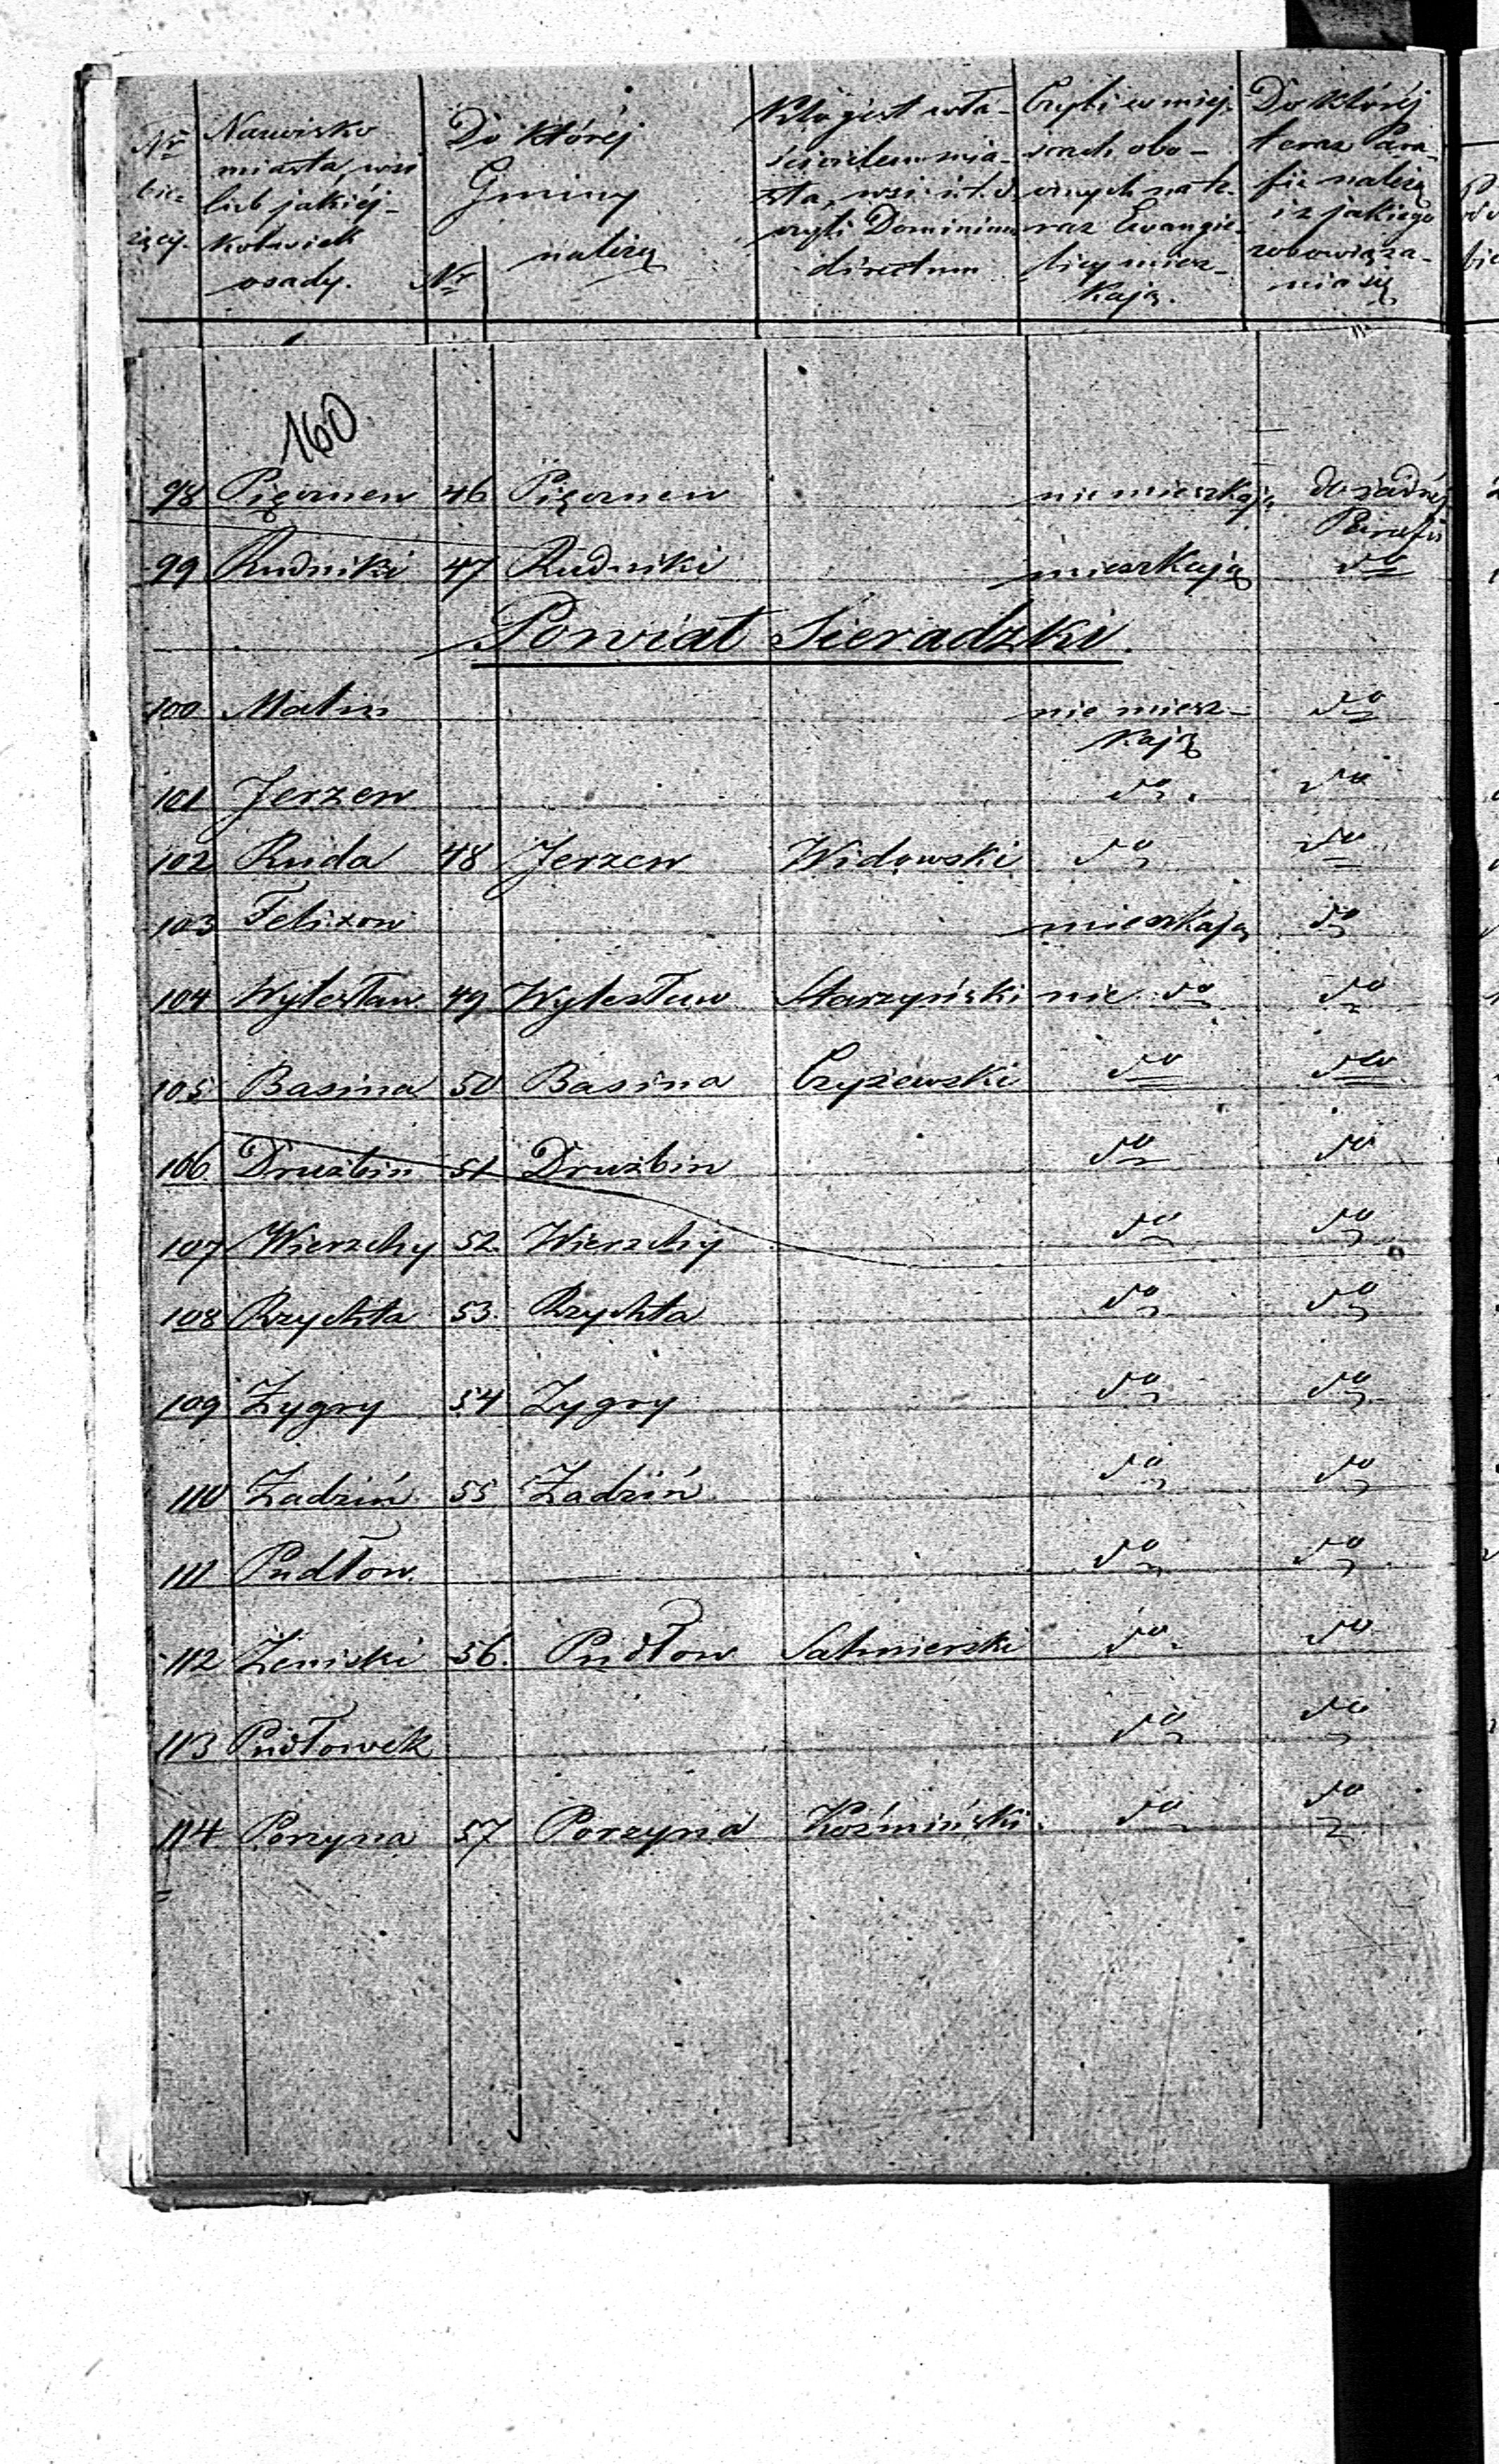 Nr bieżącej.
Nazwisko miasta, wsi lub jakiéj-kolwiek osady.
Do któréj Gminy należą
Nr
Kto jest właścicielem miasta, wsi i t.d. czyli Dominium directum
Czyli w miejscach obocznych na te- raz Ewangielicy mieszkają.
Do któréj teraz Parafii należą i z jakiego zobowiązania się
160
98 Pięornew 46 Pięornew nie mieszkają do żadnéj Parafii
99 Rudniki 47 Rudniki mieszkają do
Powiat Sieradzki.
100 Malin nie mieszkają do
101 Jerzew do do
102 Ruda 48 Jerzew Widowski do do
103 Felixow mieszkają do
104 Wylezław 49 Wylezław Starzyński nie do do
105 Basina 50 Basina Czyżewski do do
106 Drużbin 51 Drużbin do do
107 Wierzchy 52 Wierzchy do do
108 Rzychta 53. Rzychta do do
109 Zygry 54 Zygry do do
110 Zadziń 55 Zadziń do do
111 Pudłow. do do
112 Zeniski 56. Pudłow do do
113 Pudłowek do do
114 Porzyna 57 Porzyna Koźmiński do do